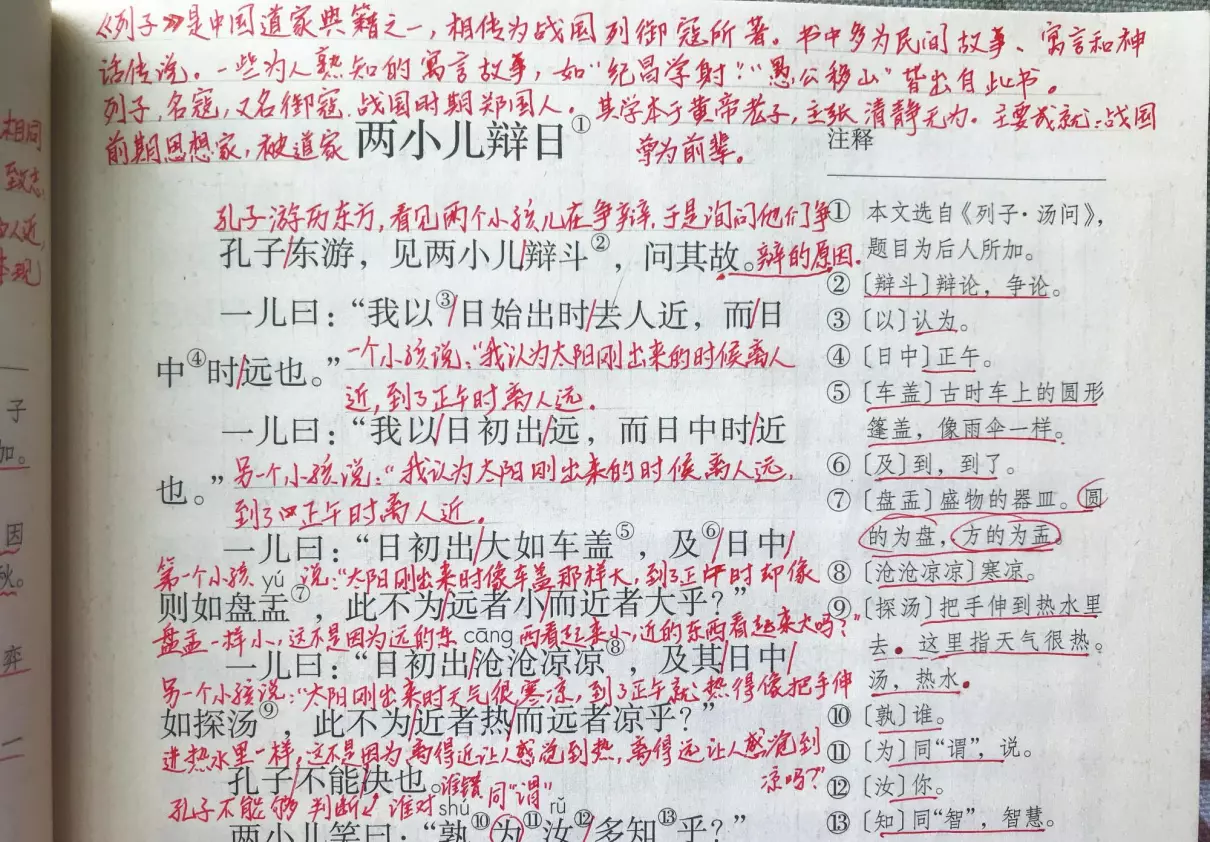 《列子》是中国道家典籍之一，相传为战国列御寇所著。书中多为民间故事、寓言和神
话传说。一些为人熟知的寓言故事，如“纪昌学射”“愚公移山”皆出自此书。
列子，名寇，又名御寇，战国时期郑国人。其学本于黄帝老子，主张清静无为。主要成就：战国
前期思想家，被道家尊为前辈。
两小儿辩日①
孔子游历东方，看见两个小孩儿在争辩，于是询问他们争
孔子/东游，见两小儿/辩斗②，问其故。辩的原因.
一儿曰：“我以③/日始出时/去人近，而/日
中④时/远也。”一个小孩说：“我认为太阳刚出来的时候离人
近，到了正午时离人远.
一儿曰：“我以/日初出/远，而日中时/近
也。”另一个小孩说：“我认为太阳刚出来的时候离人远，
到了正午时离人近。
一儿曰：“日初出/大如车盖⑤，及⑥/日中/
第一个小孩 yú 说：“太阳刚出来时像车盖那样大，到了正中时却像
则如盘盂⑦，此不为/远者小/而近者大乎？”
盘盂一样小，这不是因为远的东 cāng 西看起来小，近的东西看起来大吗？”
一儿曰：“日初出/沧沧凉凉⑧，及其/日中/
另一个小孩说：“太阳刚出来时天气很寒凉，到了正午就热得像把手伸
如探汤⑨，此不为/近者热/而远者凉乎？”
进热水里一样，这不是因为离得近让人感觉到热，离得远让人感觉到
凉吗？”
孔子/不能/决也。谁错 同“谓”
孔子不能够判断谁对 shú rǔ
两小儿笑曰：“孰⑩/为⑪汝⑫/多知⑬乎？”
注释
① 本文选自《列子·汤问》，
题目为后人所加。
② 〔辩斗〕辩论，争论。
③ 〔以〕认为。
④ 〔日中〕正午。
⑤ 〔车盖〕古时车上的圆形
篷盖，像雨伞一样。
⑥ 〔及〕到，到了。
⑦ 〔盘盂〕盛物的器皿。圆
的为盘，方的为盂。
⑧ 〔沧沧凉凉〕寒凉。
⑨ 〔探汤〕把手伸到热水里
去。这里指天气很热。
汤，热水。
⑩ 〔孰〕谁。
⑪ 〔为〕同“谓”，说。
⑫ 〔汝〕你。
⑬ 〔知〕同“智”，智慧。
相同
致志
人近，
体现
子
加。
因
秋。
弈
二